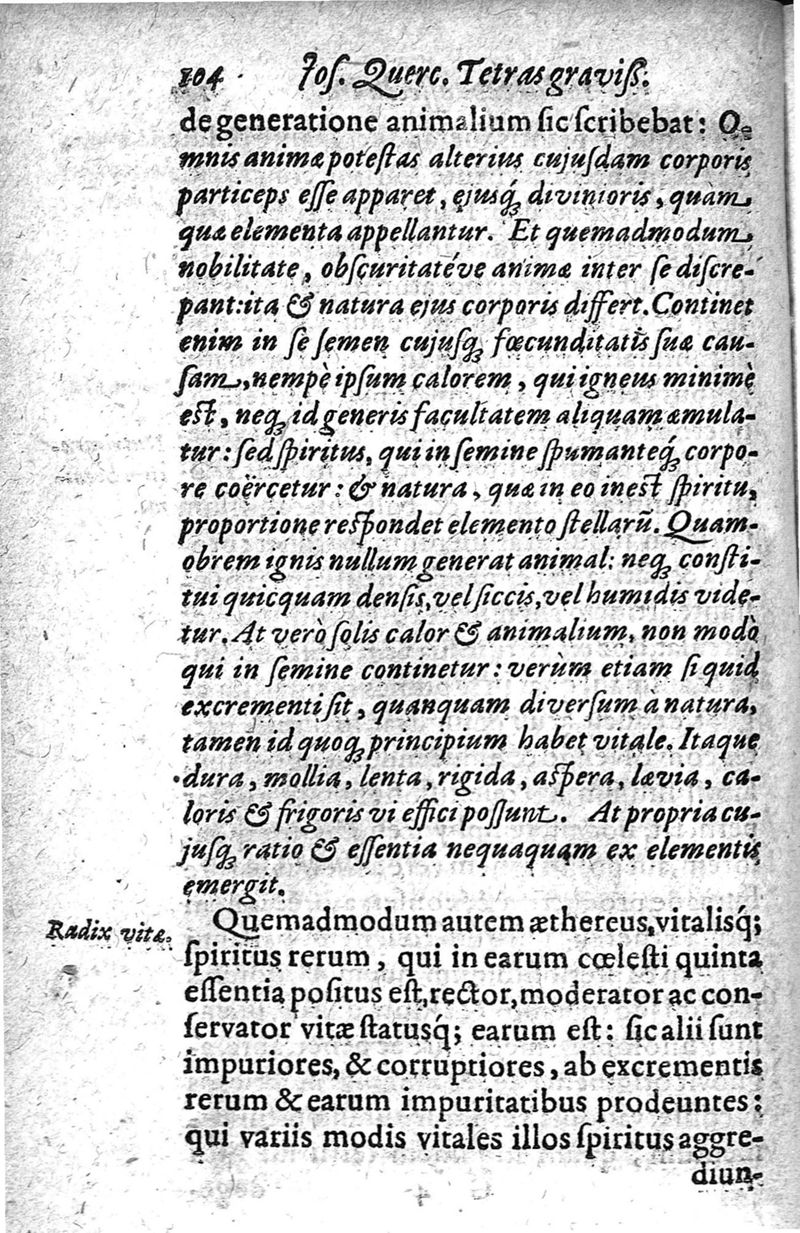 104 Jos. Querc. Tetras graviss.
de generatione animalium sic scribebat: O-
mnis animæ potestas alterius cujusdam corporis
particeps esse apparet, ejusq́ꝫ divinioris, quàm
quæ elementa appellantur. Et quemadmodum
nobilitate, obscuritatéve animæ inter se discre-
pant: ita & natura ejus corporis differt. Continet
enim in se semen cujusqꝫ fœcunditatis suæ cau-
sam, nempè ipsum calorem, qui igneus minimè
est, neqꝫ id generis facultatem aliquam æmula-
tur: sed spiritus, qui in semine spumanteq́ꝫ corpo-
re coërcetur: & natura, quæ in eo inest spiritu,
proportione respondet elemento stellarũ. Quam-
obrem ignis nullum generat animal: neqꝫ consti-
tui quicquam densis, vel siccis, vel humidis vide-
tur. At verò solis calor & animalium, non modò
qui in semine continetur: verùm etiam si quid
excrementi sit, quanquam diversum à natura,
tamen id quoqꝫ principium habet vitale. Itaque
dura, mollia, lenta, rigida, aspera, lævia, ca-
loris & frigoris vi effici possunt. At propria cu-
jusqꝫ ratio & essentia nequaquam ex elementis
emergit.
Radix vitæ.
Quemadmodum autem æthereus, vitalisq́;
spiritus rerum, qui in earum cœlesti quinta
essentia positus est, rector, moderator ac con-
servator vitæ statusq́; earum est: sic alii sunt
impuriores, & corruptiores, ab excrementis
rerum & earum impuritatibus prodeuntes:
qui variis modis vitales illos spiritus aggre-
diun-